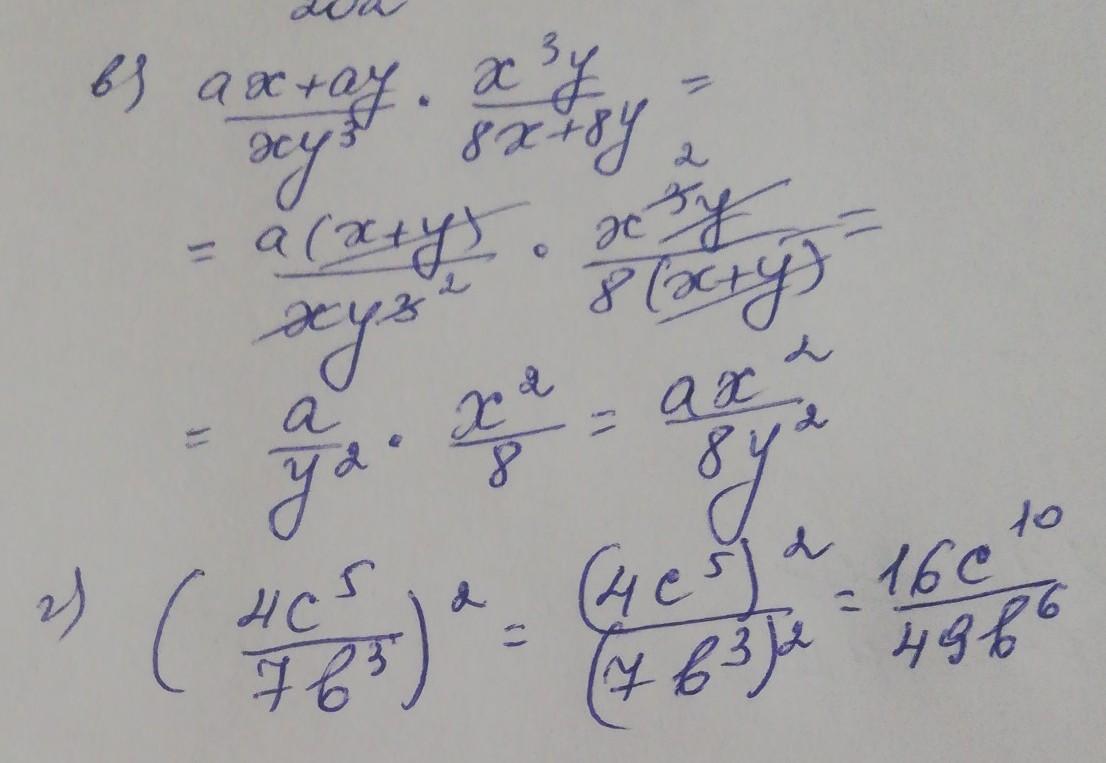 в) (ax+ay)/(xy³) · (x³y)/(8x+8y) =
= (a(x+y))/(xy³ ²) · (x³ ²y)/(8(x+y)) =
= a/y² · x²/8 = ax²/8y²
г) (4c⁵/7b³)² = (4c⁵)²/(7b³)² = 16c¹⁰/49b⁶